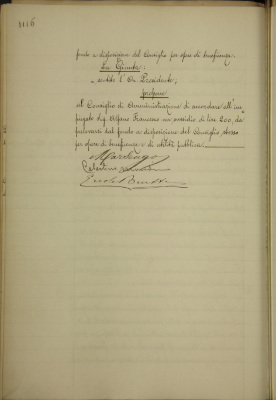 fondo a disposizione del Consiglio per opere di beneficenza.
La Giunta;
udito l'On. Presidente;
propone
al Consiglio di Amministrazione di accordare all'im=
piegato Sig. Alfano Francesco un sussidio di lire 200, da
prelevarsi dal fondo a disposizione del Consiglio stesso
per opere di beneficenza e di utilità pubblica.